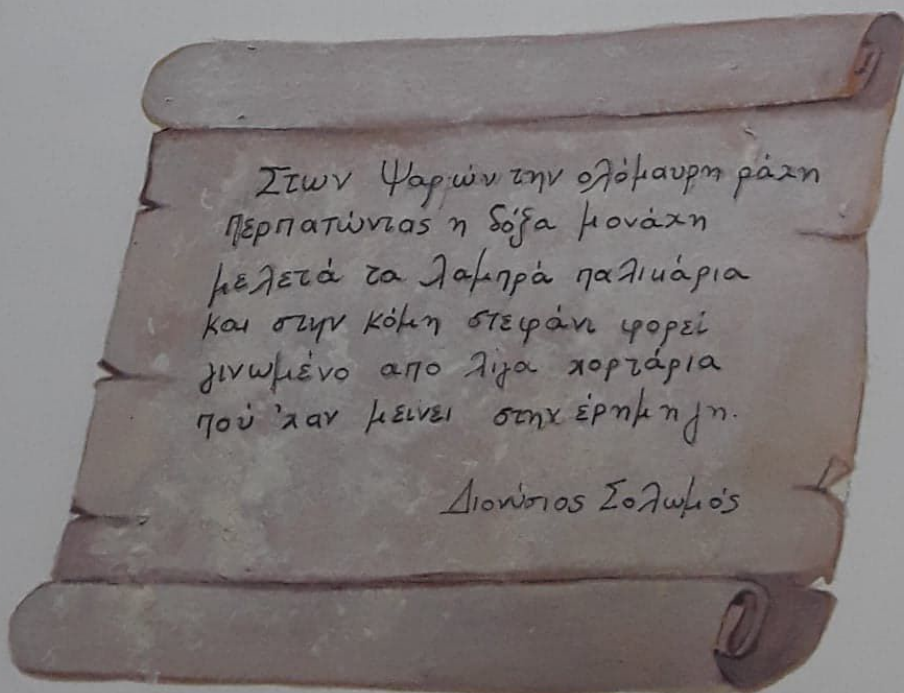 Στων Ψαρών την ολόμαυρη ράχη
Περπατώντας η δόξα μονάχη
μελετά τα λαμπρά παλικάρια
και στην κόμη στεφάνι φορεί
γινωμένο απο λίγα χορτάρια
πού 'χαν μείνει στην έρημη γη.
Διονύσιος Σολωμός